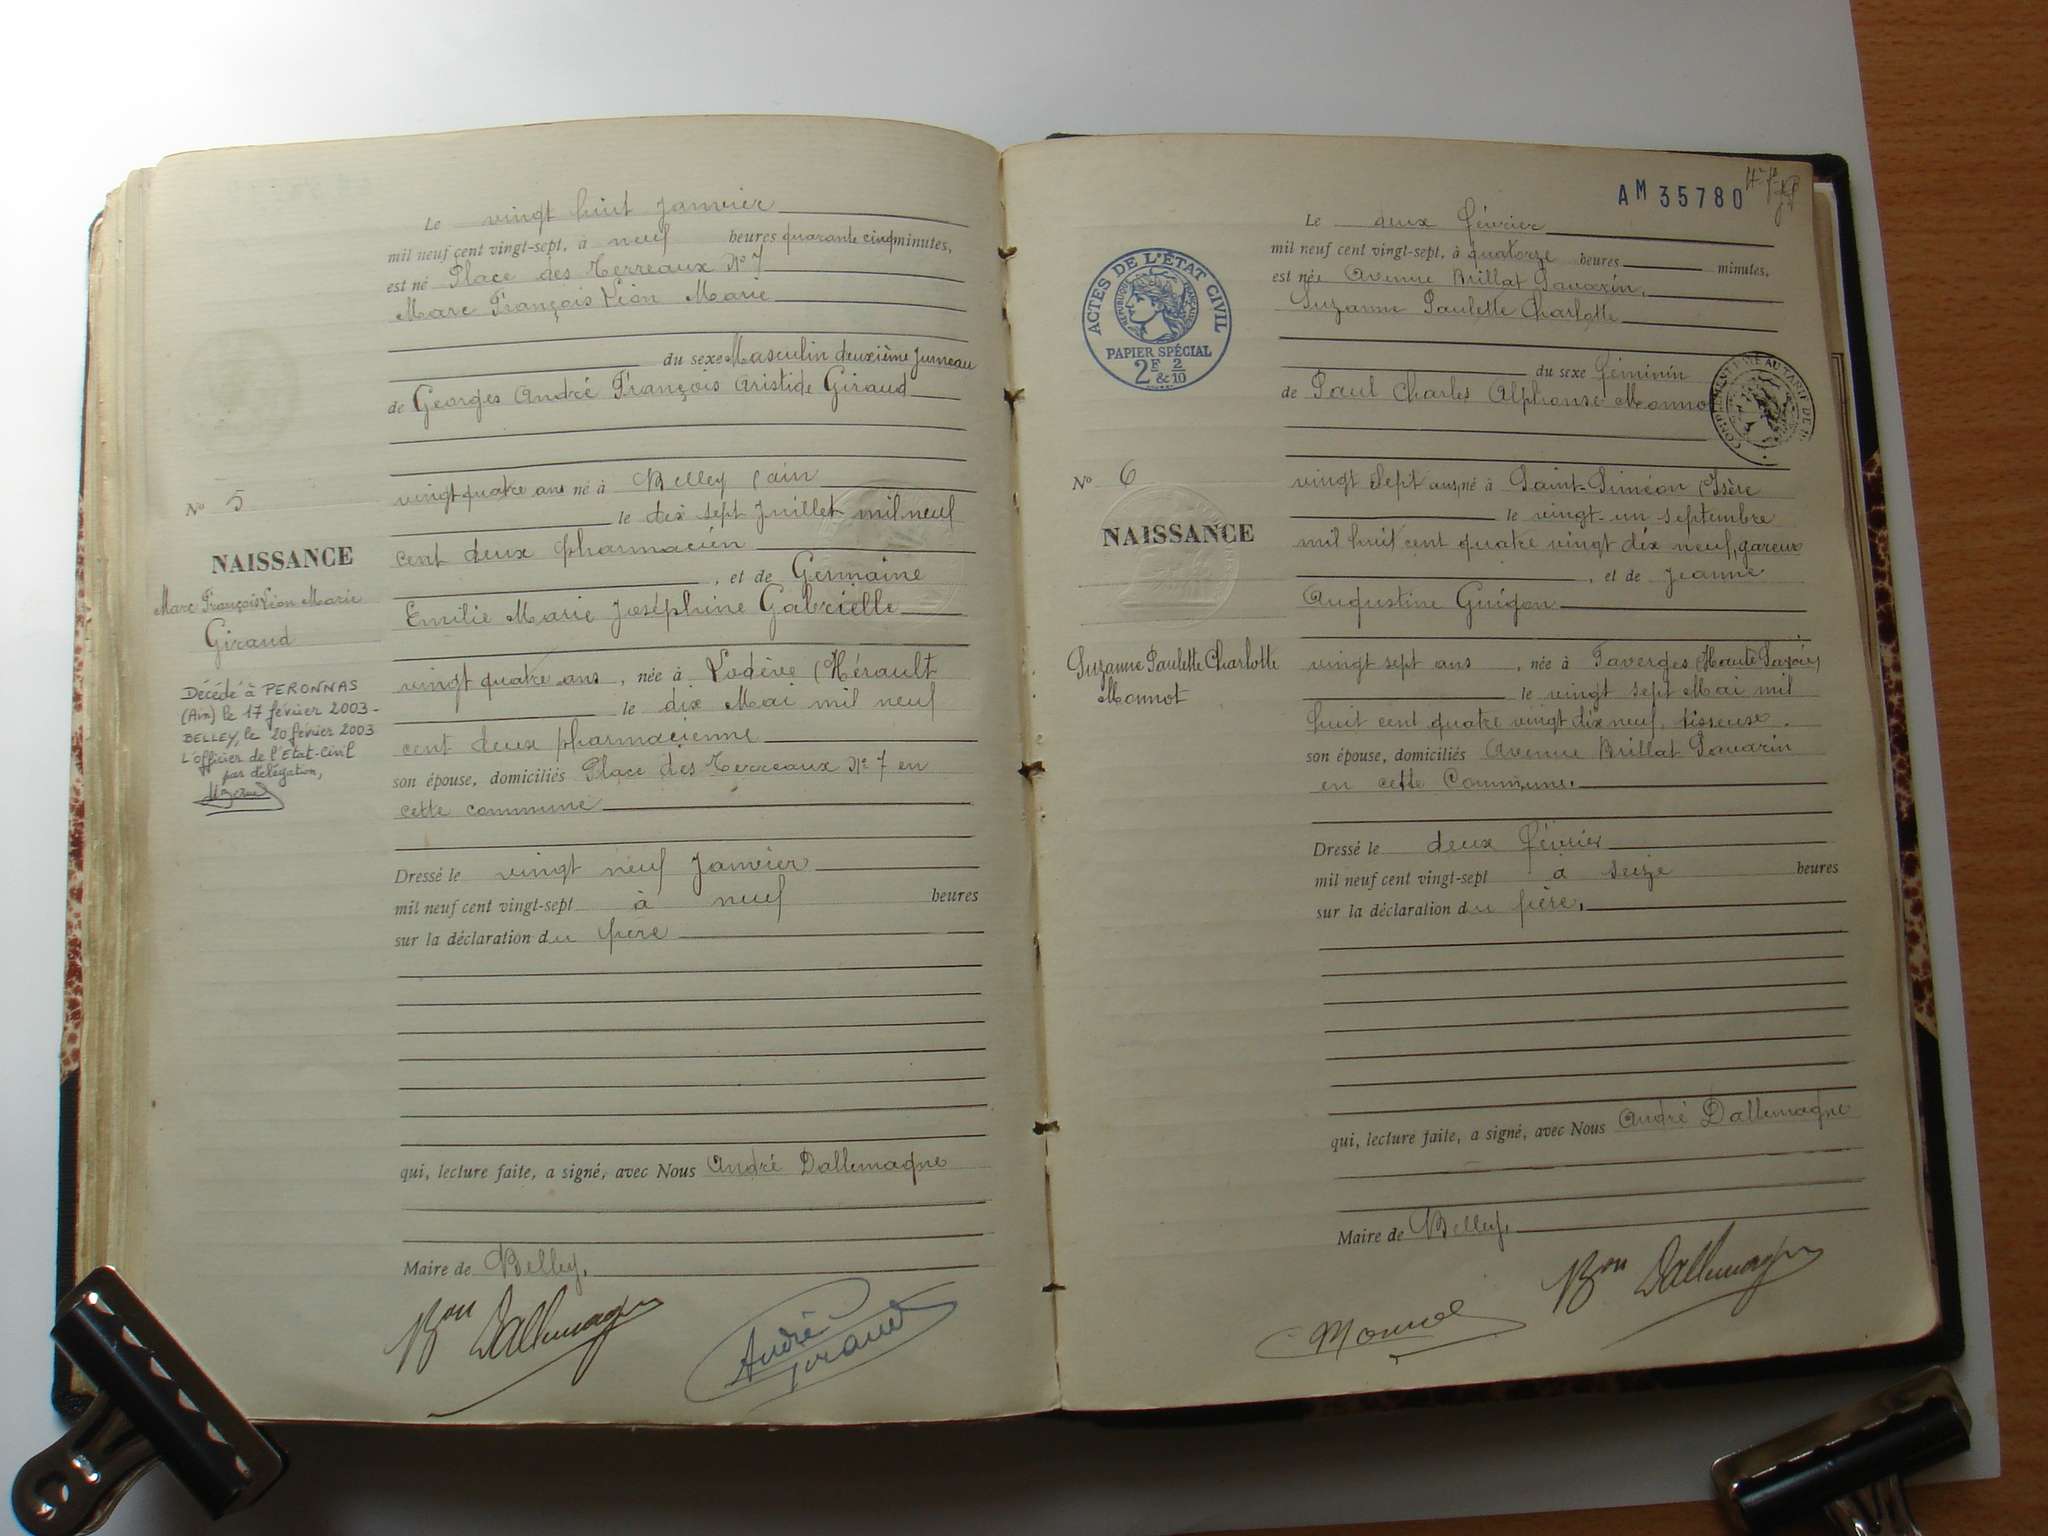 Le vingt huit Janvier
mil neuf cent vingt-sept, à neuf heures quarante cinq minutes,
est né Place des Terreaux N° 7
Marc François Léon Marie
du sexe Masculin deuxième Jumeau
de Georges André François Aristide Giraud
N° 5
vingt quatre ans né à Belley (ain
le dix sept Juillet mil neuf
NAISSANCE
cent deux pharmacien
, et de Germaine
Marc François Léon Marie
Giraud
Emilie Marie Joséphine Gabrielle
vingt quatre ans, née à Lodève (Hérault
le dix Mai mil neuf
cent deux pharmacienne
son épouse, domiciliés Place des Terreaux N° 7 en
cette commune
Décédé à PERONNAS
(Ain) le 17 février 2003 -
BELLEY, le 20 février 2003
L'officier de l'Etat-Civil
par délégation,
Dressé le vingt neuf Janvier
mil neuf cent vingt-sept à neuf heures
sur la déclaration du père
qui, lecture faite, a signé, avec Nous André Dallemagne
Maire de Belley,
Bon Dallemagne
André Giraud
AM 35780
Le deux février
mil neuf cent vingt-sept, à quatorze heures minutes,
est née Avenue Brillat Savarin,
Suzanne Paulette Charlotte
ACTES DE L'ÉTAT CIVIL
RÉPUBLIQUE FRANÇAISE
PAPIER SPÉCIAL
2F & 2/10
du sexe féminin
de Paul Charles Alphonse Monno
N° 6
vingt sept ans, né à Saint-Siméon (Isère
le vingt-un septembre
NAISSANCE
mil huit cent quatre vingt dix neuf, gareur
, et de Jeanne
Augustine Guigon
Suzanne Paulette Charlotte
Monnot
vingt sept ans, née à Faverges (Haute Savoie)
le vingt sept Mai mil
huit cent quatre vingt dix neuf, tisseuse.
son épouse, domiciliés Avenue Brillat Savarin
en cette Commune.
Dressé le deux février
mil neuf cent vingt-sept à seize heures
sur la déclaration du père,
qui, lecture faite, a signé, avec Nous André Dallemagne
Maire de Belley,
Monnot
Bon Dallemagne